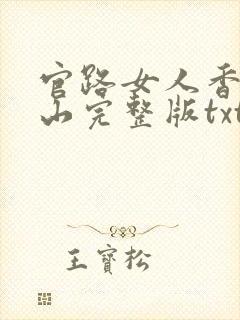 官路女人香
山完整版txt
王寳松